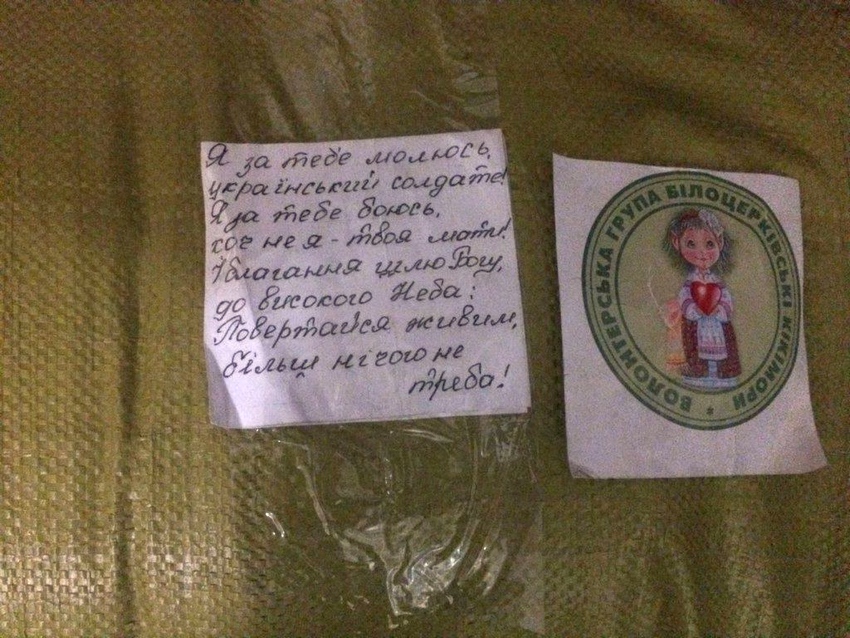 Я за тебе молюсь,
український солдате!
Я за тебе боюсь,
хоч не я - твоя мати!
І благання шлю Богу,
до високого Неба:
Повертайся живим,
більш нічого не
треба!
ВОЛОНТЕРСЬКА ГРУПА БІЛОЦЕРКІВСЬКІ КІКІМОРИ